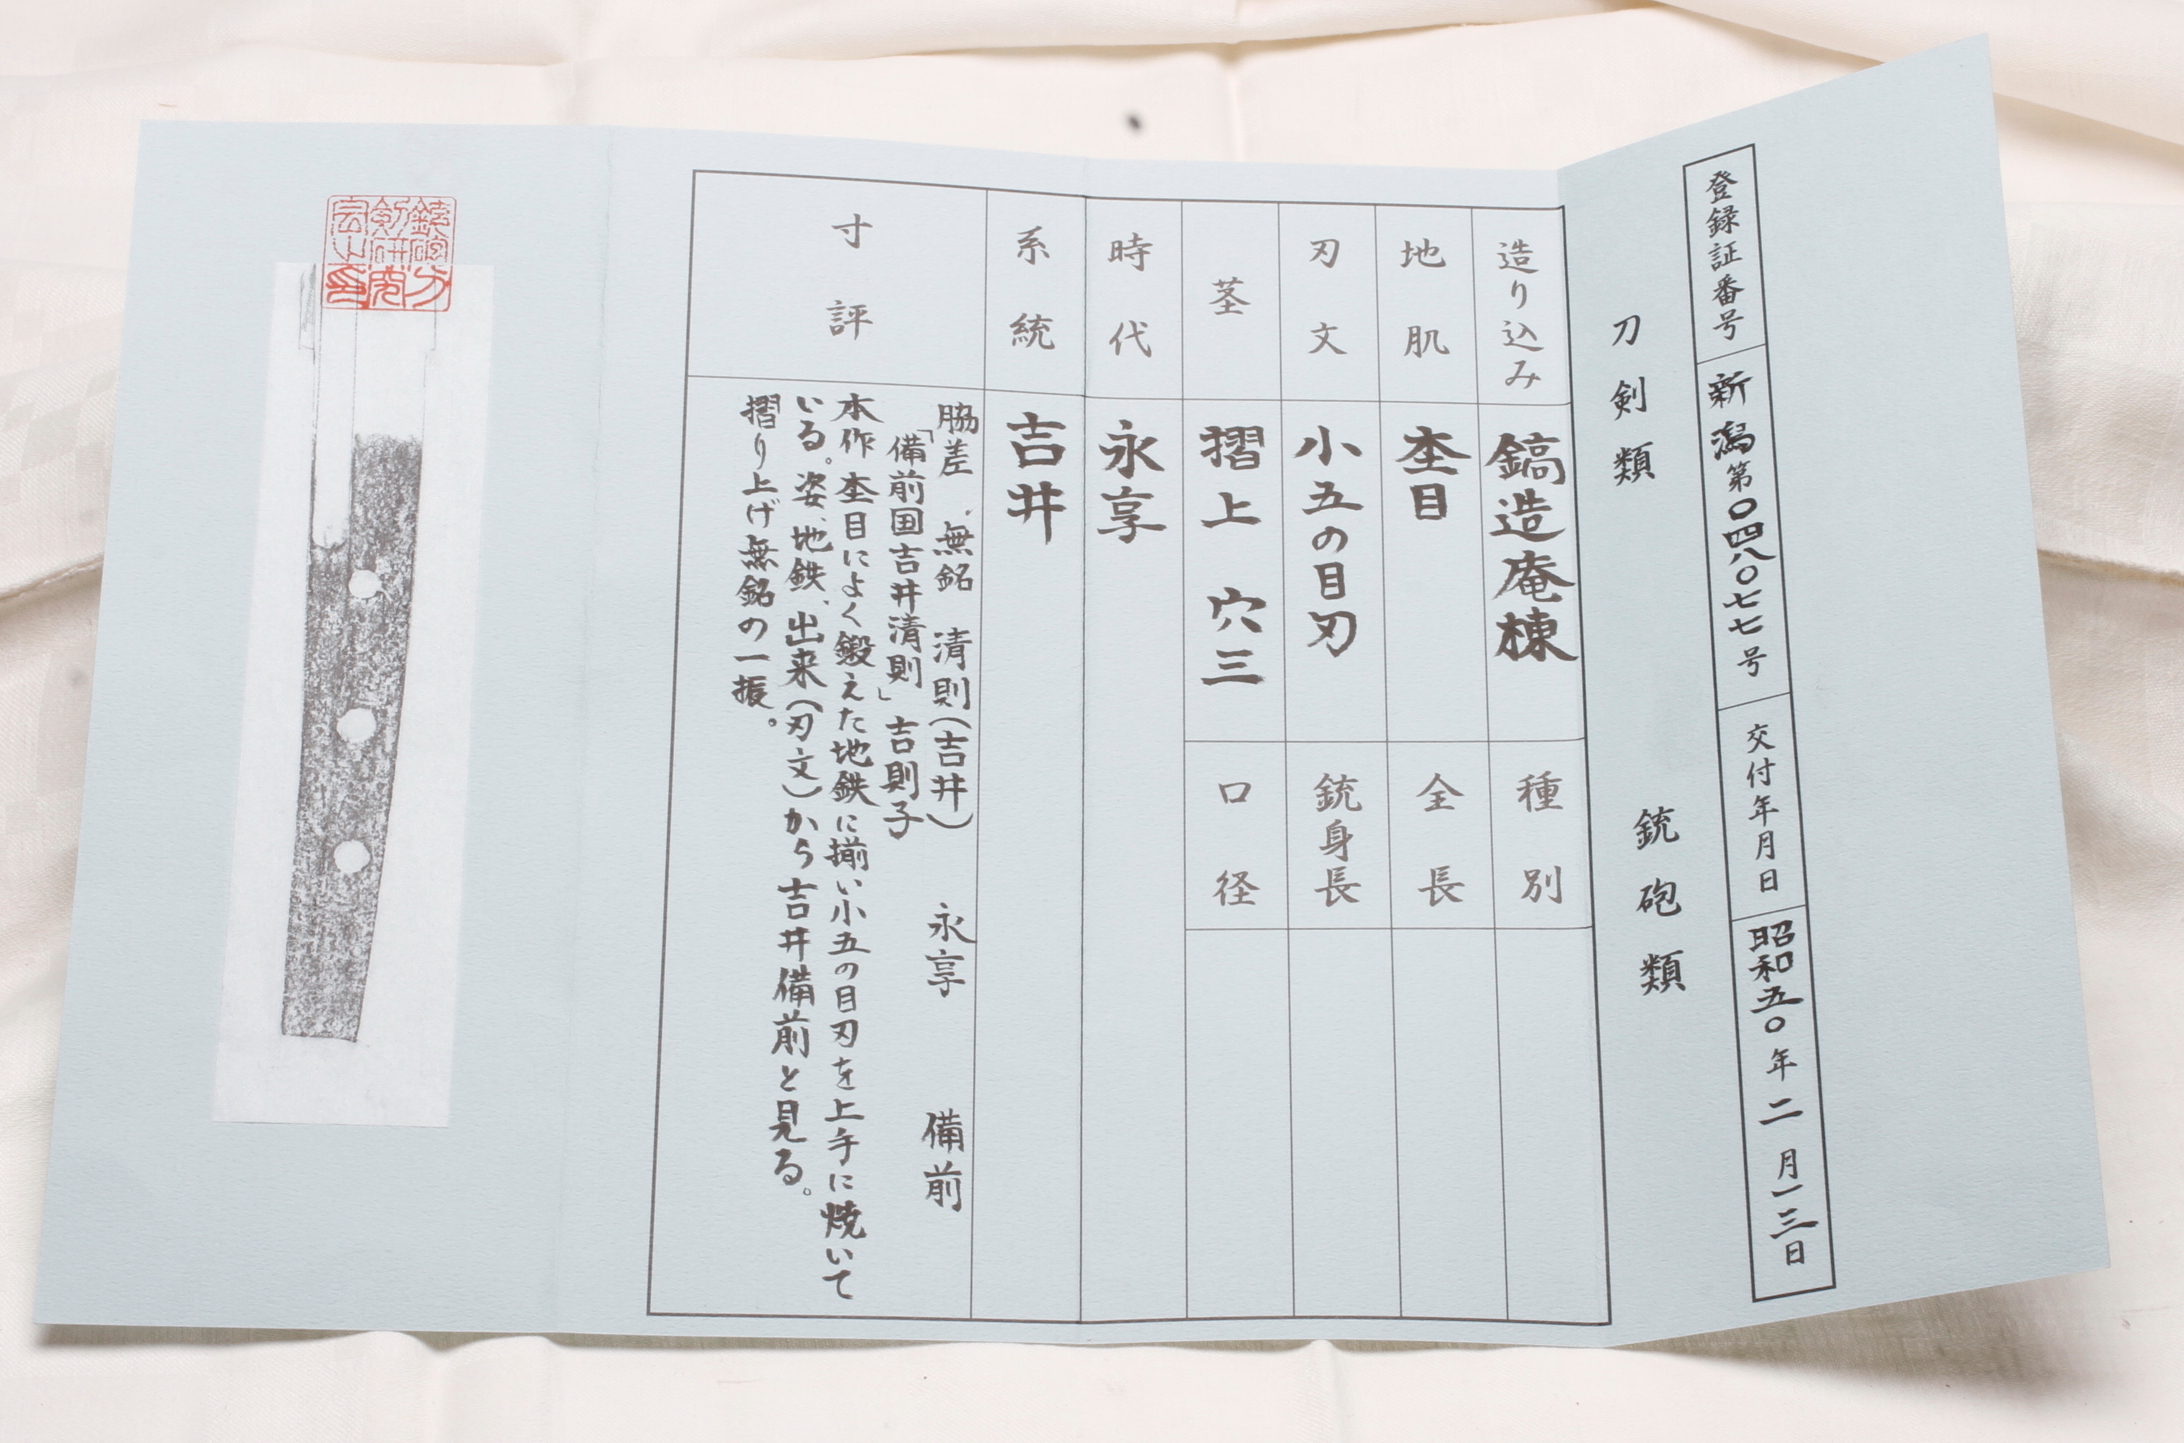 登録証番号 新潟第〇四八〇七七号 交付年月日 昭和五〇年二月一三日
刀剣類 銃砲類
造り込み 鎬造庵棟 種別
地肌 杢目 全長
刃文 小五の目刃 銃身長
茎 摺上 穴三 口径
時代 永享
系統 吉井
寸評
脇差 無銘 清則(吉井) 永享 備前
「備前国吉井清則」吉則子
本作杢目によく鍛えた地鉄に揃い小五の目刃を上手に焼いて
いる。姿、地鉄、出来(刃文)から吉井備前と見る。
摺り上げ無銘の一振。